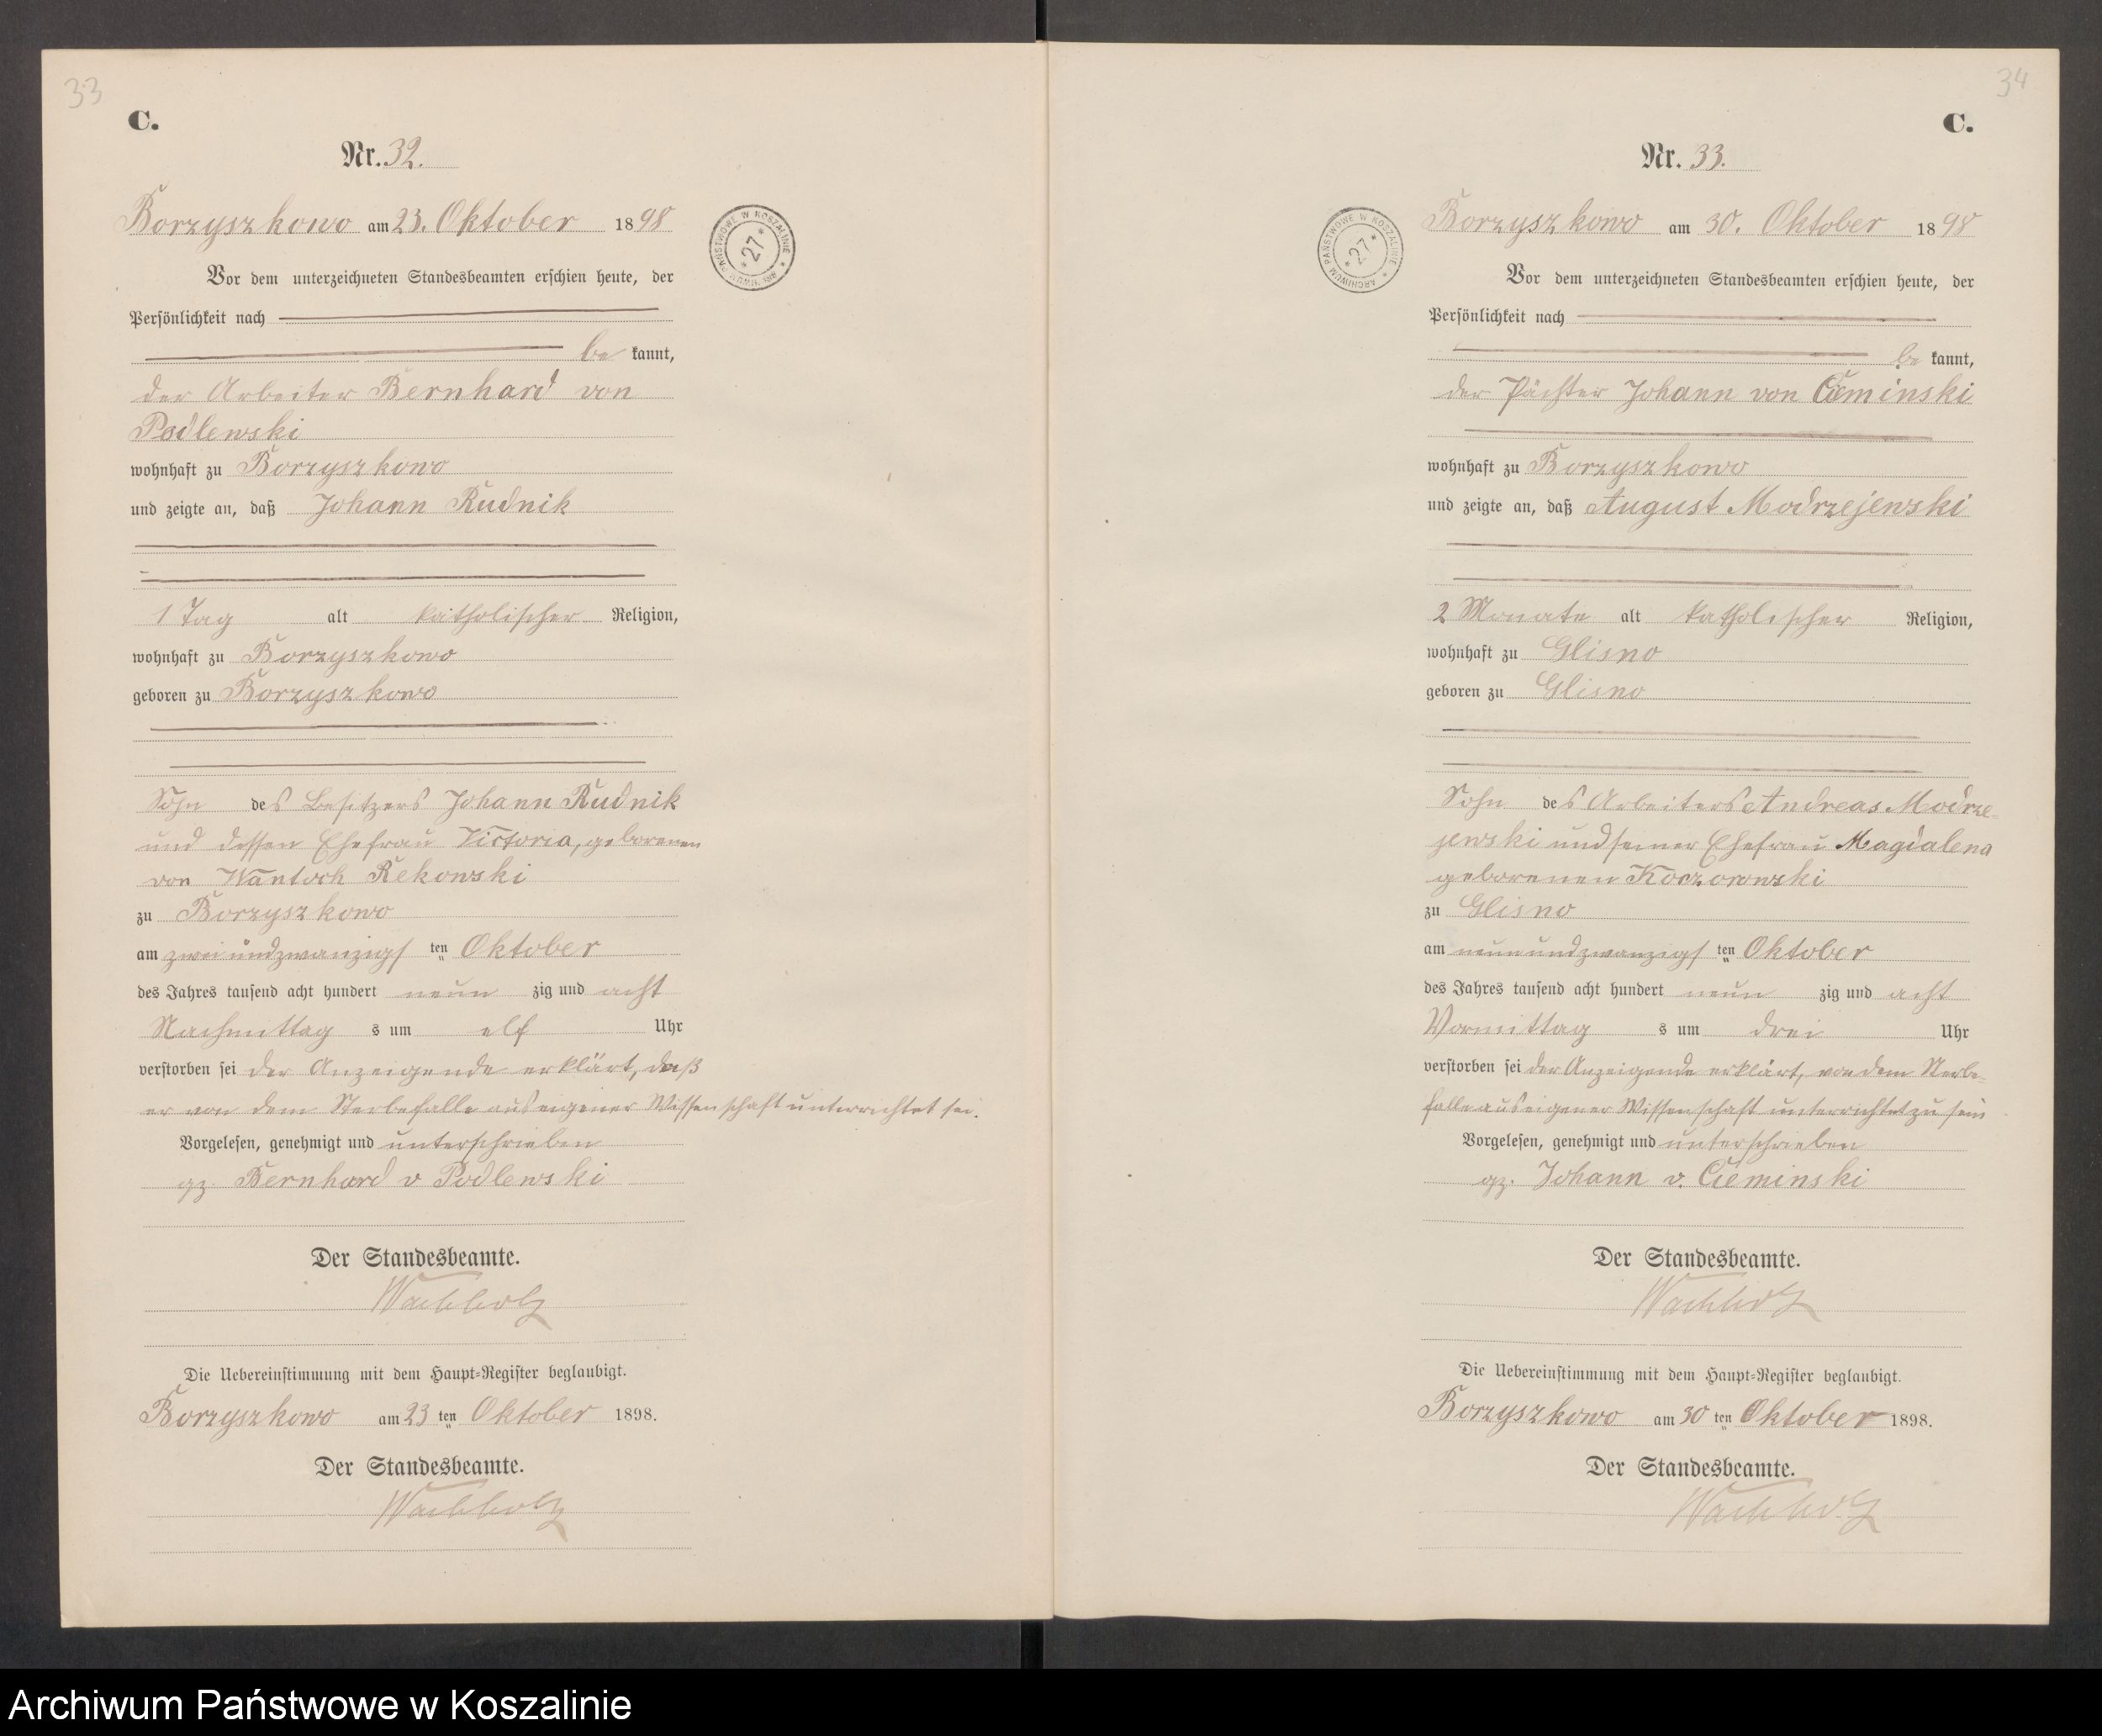 33
C.
Nr. 32.
Borzyszkowo am 23. Oktober 1898
Vor dem unterzeichneten Standesbeamten erschien heute, der
Persönlichkeit nach
be kannt,
der Arbeiter Bernhard von
Podlewski
wohnhaft zu Borzyszkowo
und zeigte an, daß Johann Rudnik
1 Tag alt katholischer Religion,
wohnhaft zu Borzyszkowo
geboren zu Borzyszkowo
Sohn des Besitzers Johann Rudnik
und dessen Ehefrau Victoria, geborenen
von Wantoch Rekowski
zu Borzyszkowo
am zweiundzwanzigs ten Oktober
des Jahres tausend acht hundert neun zig und acht
Nachmittag s um elf Uhr
verstorben sei der Anzeigende erklärt, daß
er von dem Sterbefalle aus eigener Wissenschaft unterrichtet sei.
Vorgelesen, genehmigt und unterschrieben
gz. Bernhard v Podlewski
Der Standesbeamte.
Wachholz
Die Uebereinstimmung mit dem Haupt=Register beglaubigt.
Borzyszkowo am 23 ten Oktober 1898.
Der Standesbeamte.
Wachholz
ARCHIWUM PAŃSTWOWE W KOSZALINIE
*27*
34
C.
Nr. 33.
ARCHIWUM PAŃSTWOWE W KOSZALINIE
*27*
Borzyszkowo am 30. Oktober 1898
Vor dem unterzeichneten Standesbeamten erschien heute, der
Persönlichkeit nach
be kannt,
der Pächter Johann von Cieminski
wohnhaft zu Borzyszkowo
und zeigte an, daß August Modrzejewski
2 Monate alt katholischer Religion,
wohnhaft zu Glisno
geboren zu Glisno
Sohn des Arbeiters Andreas Modrze-
jewski und seiner Ehefrau Magdalena
geborenen Koczorowski
zu Glisno
am neunundzwanzigs ten Oktober
des Jahres tausend acht hundert neun zig und acht
Vormittag s um drei Uhr
verstorben sei der Anzeigende erklärt, von dem Sterbe-
falle aus eigener Wissenschaft unterrichtet zu sein
Vorgelesen, genehmigt und unterschrieben
gz. Johann v. Cieminski
Der Standesbeamte.
Wachholz
Die Uebereinstimmung mit dem Haupt=Register beglaubigt.
Borzyszkowo am 30 ten Oktober 1898.
Der Standesbeamte.
Wachholz
Archiwum Państwowe w Koszalinie